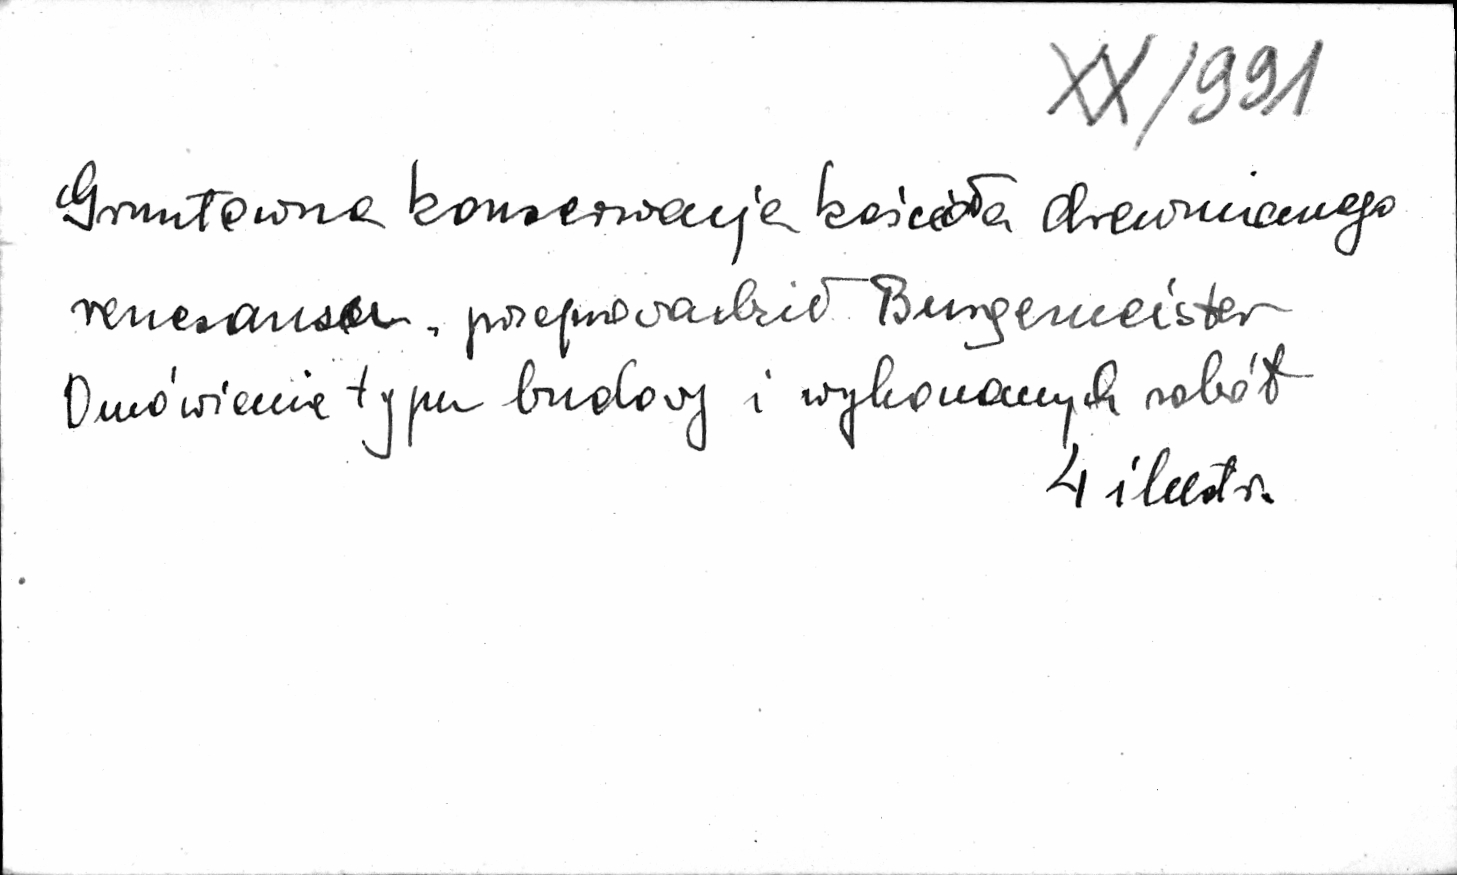 XX/991
Gruntowna konserwacja kościoła drewnianego
renesansu, przeprowadził Burgemeister
Omówienie typu budowy i wykonanych robót
4 ilustr.